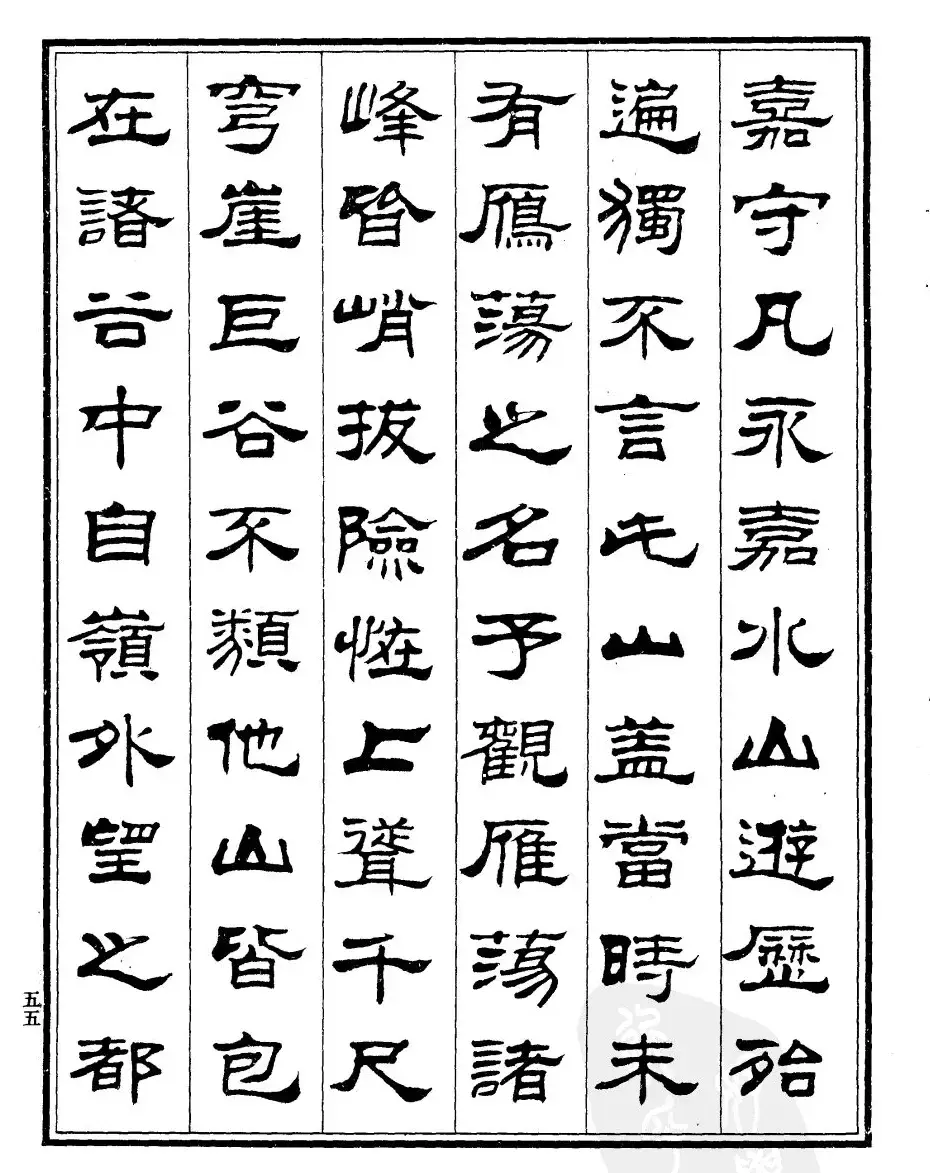 嘉守凡永嘉水山遊歷殆
遍獨不言此山蓋當時未
有鴈蕩之名予觀雁蕩諸
峰皆峭拔險恠上聳千尺
穹崖巨谷不類他山皆包
在諸谷中自嶺外望之都
五五